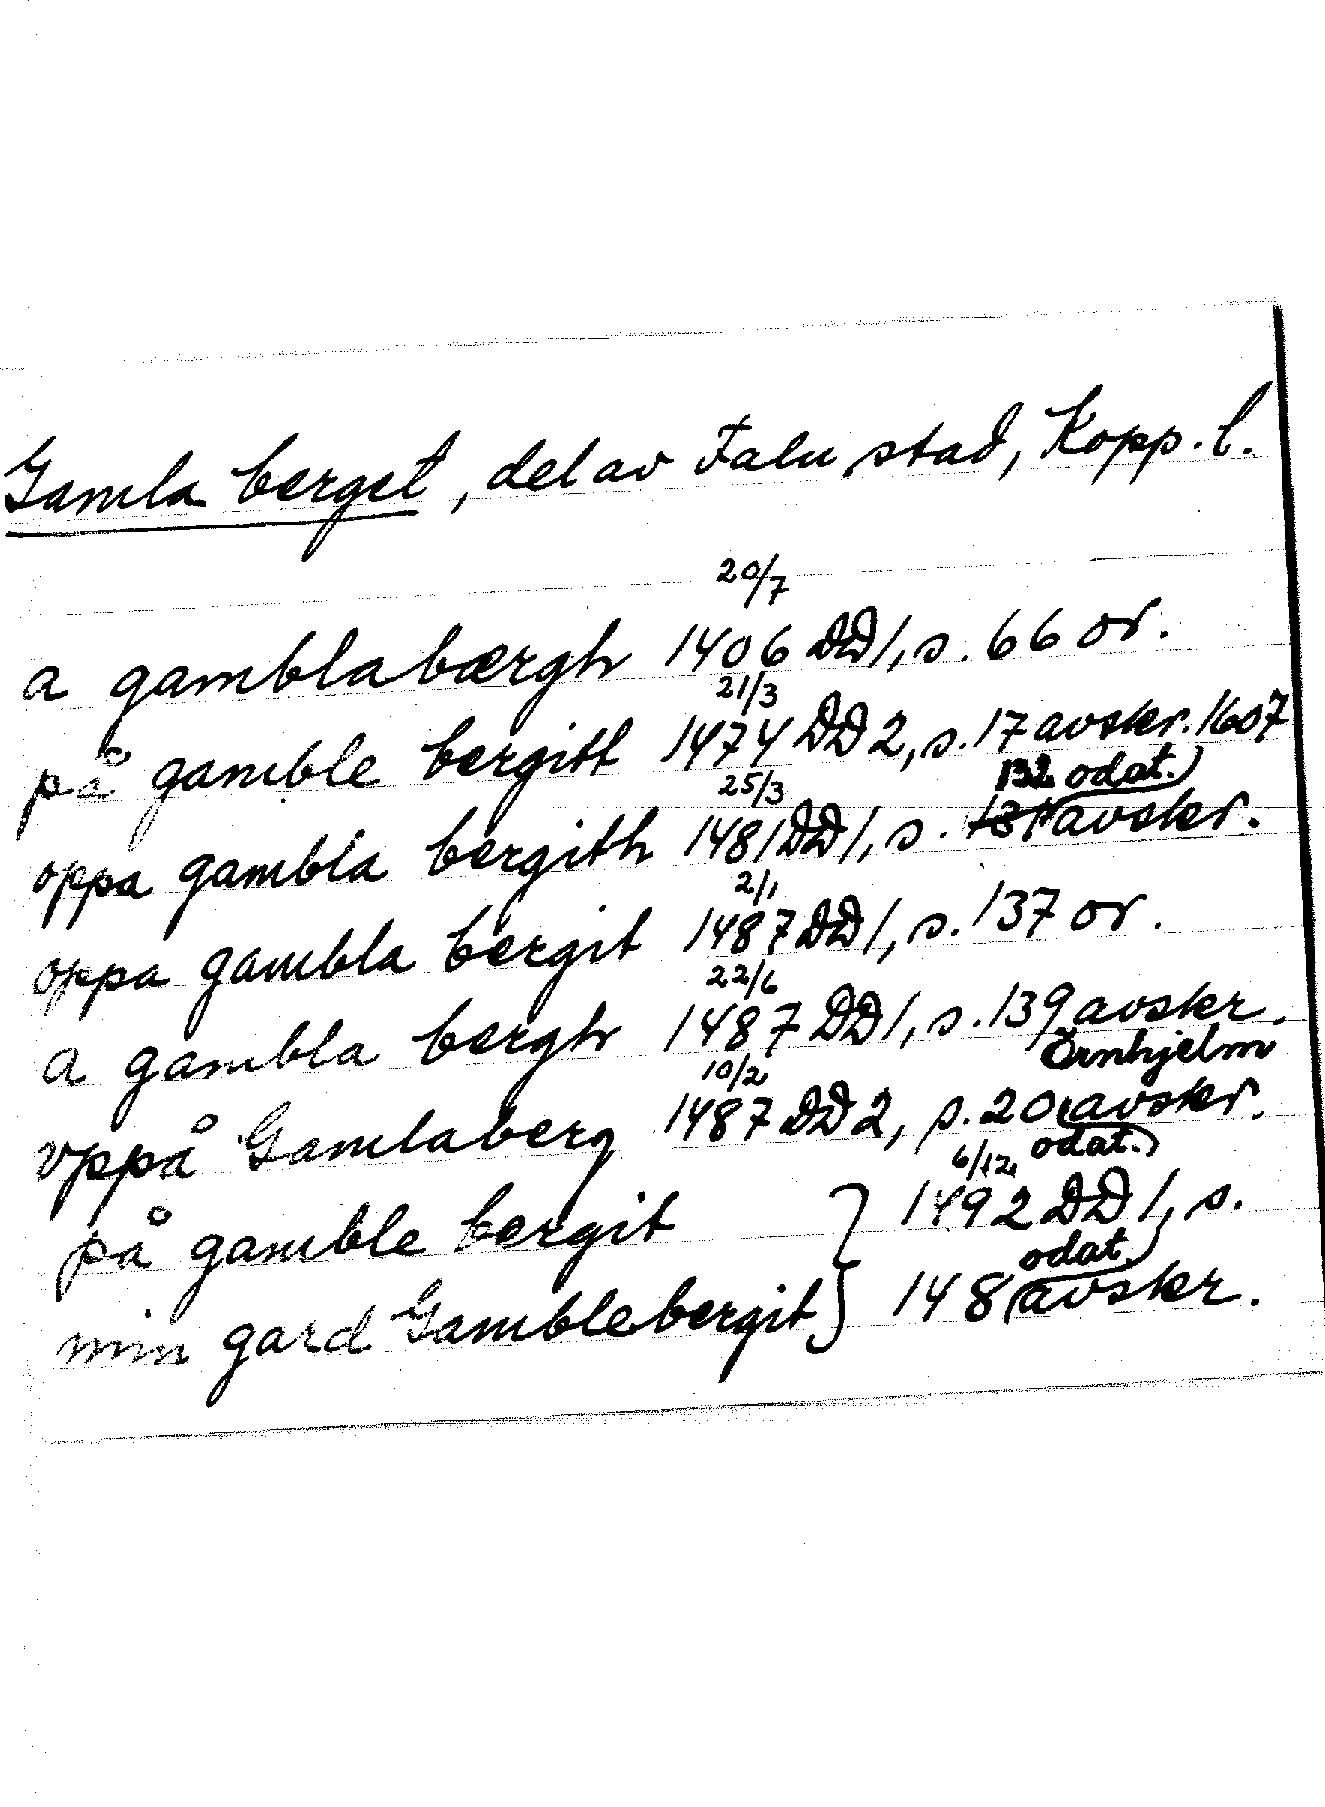 Gamla berget, del av Falu stad, Kopp. l.
20/7
a gamblabærgh 1406 DD 1, s. 66 or.
21/3
på gamble bergitt 1474 DD 2, s. 17 avskr. 1607
25/3 132 odat.)
oppa gambla bergith 1481 DD 1, s. 131 avskr.
2/1
oppa gambla bergit 1487 DD 1, s. 137 or.
22/6
a gambla bergh 1487 DD 1, s. 139 avskr.
10/2 Örnhjelm
vppå Gamlaberg 1487 DD 2, s. 20 (avskr.
6/12 odat.)
på gamble bergit } 1492 DD 1, s.
odat.)
min gard Gamblebergit } 148 (avskr.